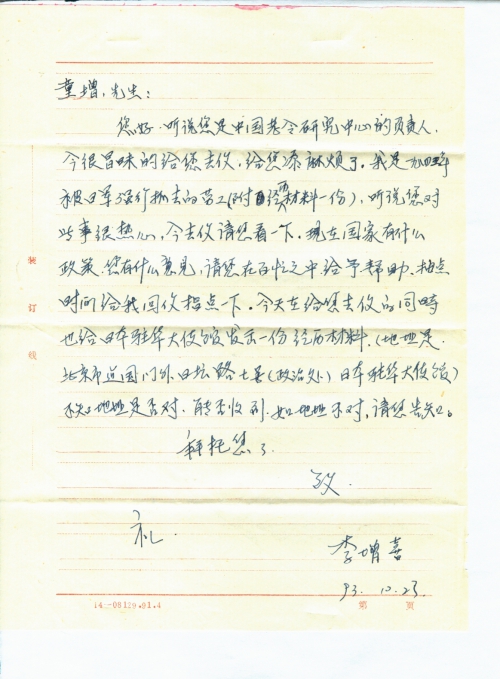 童增先生：
您好，听说您是中国老令研究中心的负责人，
今很冒昧的给您去信，给您添麻烦了。我是一九四四年
被日军强行抓去的劳工(附经历材料一份)，听说您对
此事很热心，今去信请您看一下。现在国家有什么
政策，您有什么意见，请您在百忙之中给予帮助，抽点
时间给我回信指点一下。今天在给您去信的同时
也给日本驻华大使馆发去一份经历材料。(地址是
北京市建国门外日坛路七号(政治处)日本驻华大使馆)
不知地址是否对，能否收到，如地址不对，请您告知。
拜托您了
致
礼
李增喜
93.10.23.
装
订
线
14—08129.91.4
第 页